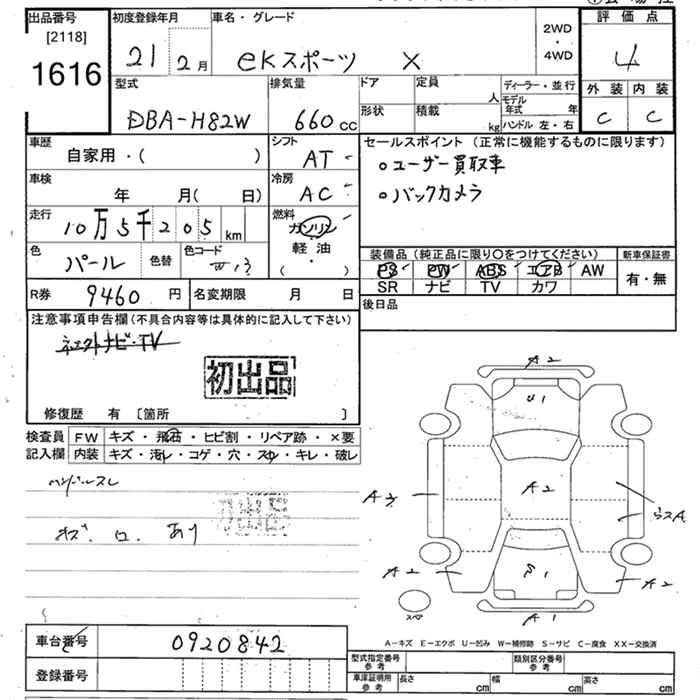 出品番号
[2118]
1616
初度登録年月
21 2月
車名・グレード
eKスポーツ X
2WD
・
4WD
評価点
4
外装 内装
C C
型式
DBA-H82W
排気量
660 cc
ドア
形状
定員 人
積載 kg
ディーラー・並行
モデル年式 年
ハンドル 左・右
車歴
自家用・( )
シフト
AT
車検
年 月( 日)
冷房
AC
走行
10万5千205 km
燃料
ガソリン
軽油
( )
色
パール
色替
色コード
W13
R券 9460 円
名変期限 月 日
セールスポイント (正常に機能するものに限ります)
○ユーザー買取車
○バックカメラ
装備品 (純正品に限り○をつけてください)
PS PW ABS エアB AW
SR ナビ TV カワ
新車保証書
有・無
後日品
注意事項申告欄 (不具合内容等は具体的に記入して下さい)
ナビ・TV
初出品
修復歴 有 [箇所 ]
検査員 FW キズ・飛石・ヒビ割・リペア跡・×要
記入欄 内装 キズ・汚レ・コゲ・穴・スレ・キレ・破レ
ハンドルスレ
キズ.ロ.あり
初出品
A2
U1
A2
A3
A2
S1
A2
A1
スペア
A-キズ E-エクボ U-凹み W-補修跡 S-サビ C-腐食 XX-交換済
車台番号 0920842
登録番号
型式指定番号 参考
類別区分番号 参考
車庫証明用 参考
長さ cm 幅 cm 高さ cm